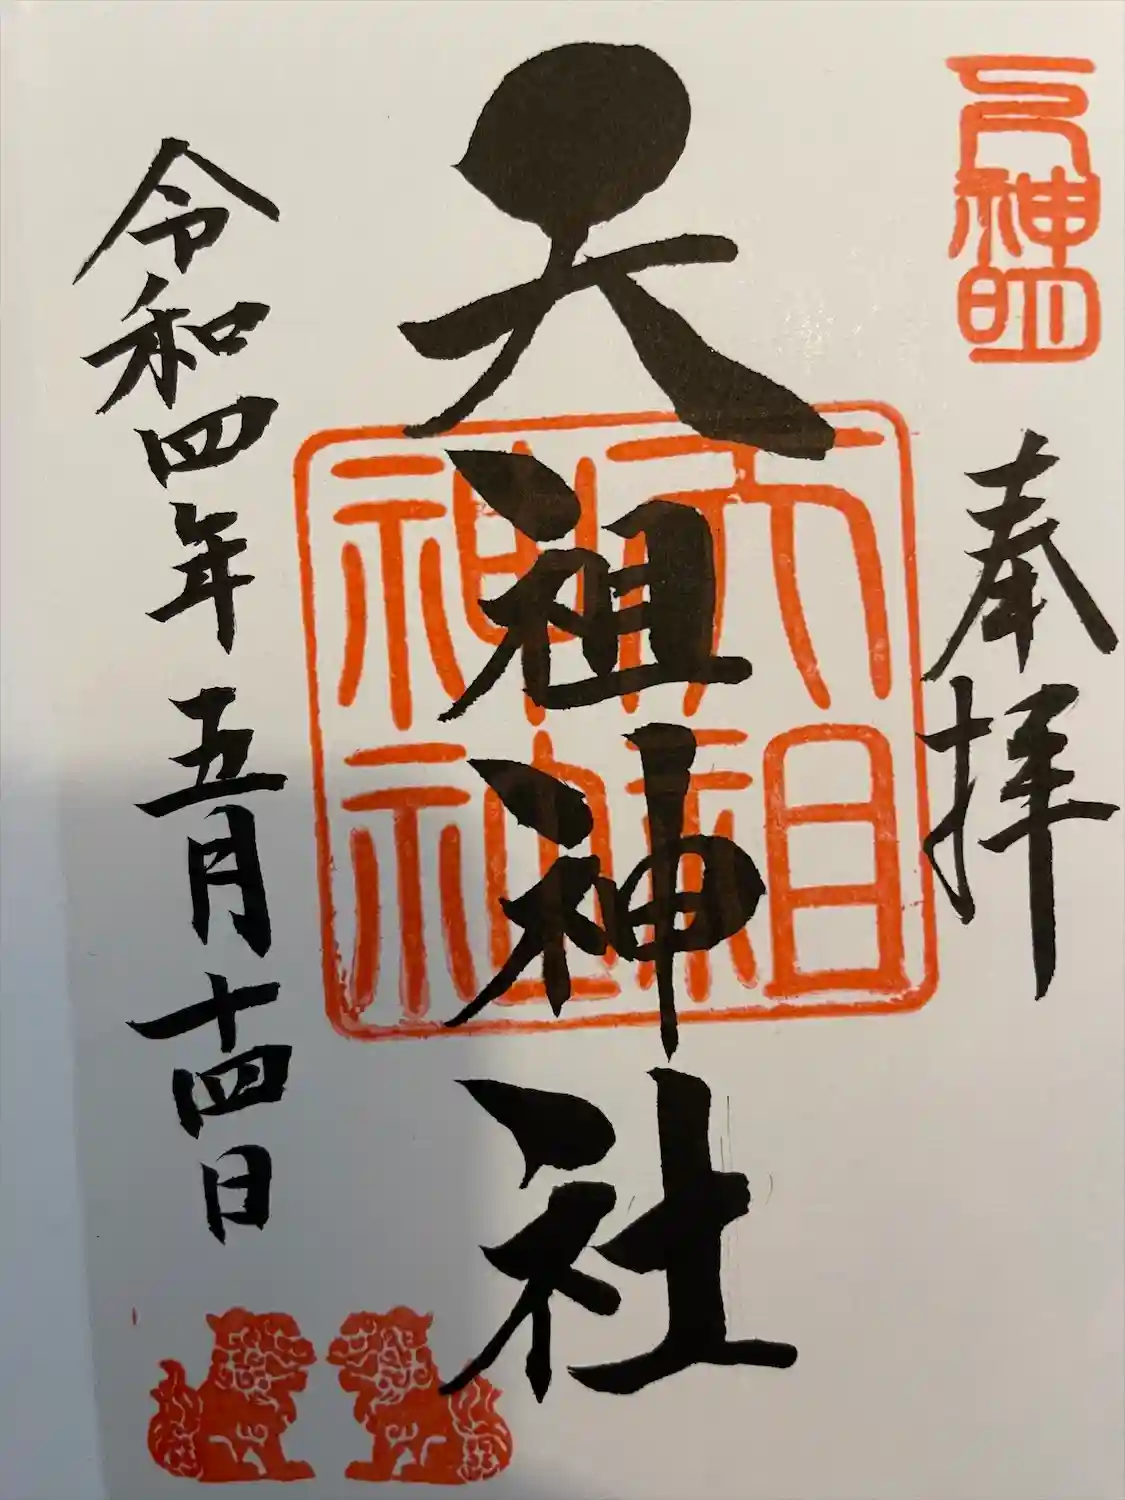 神明
奉拝
天祖神社
天祖
神社
令和四年五月十四日